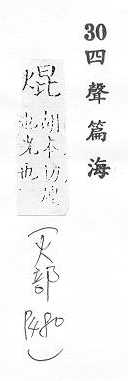 30四聲篇海
焜
胡本切煌
也光也
(火部 P480)